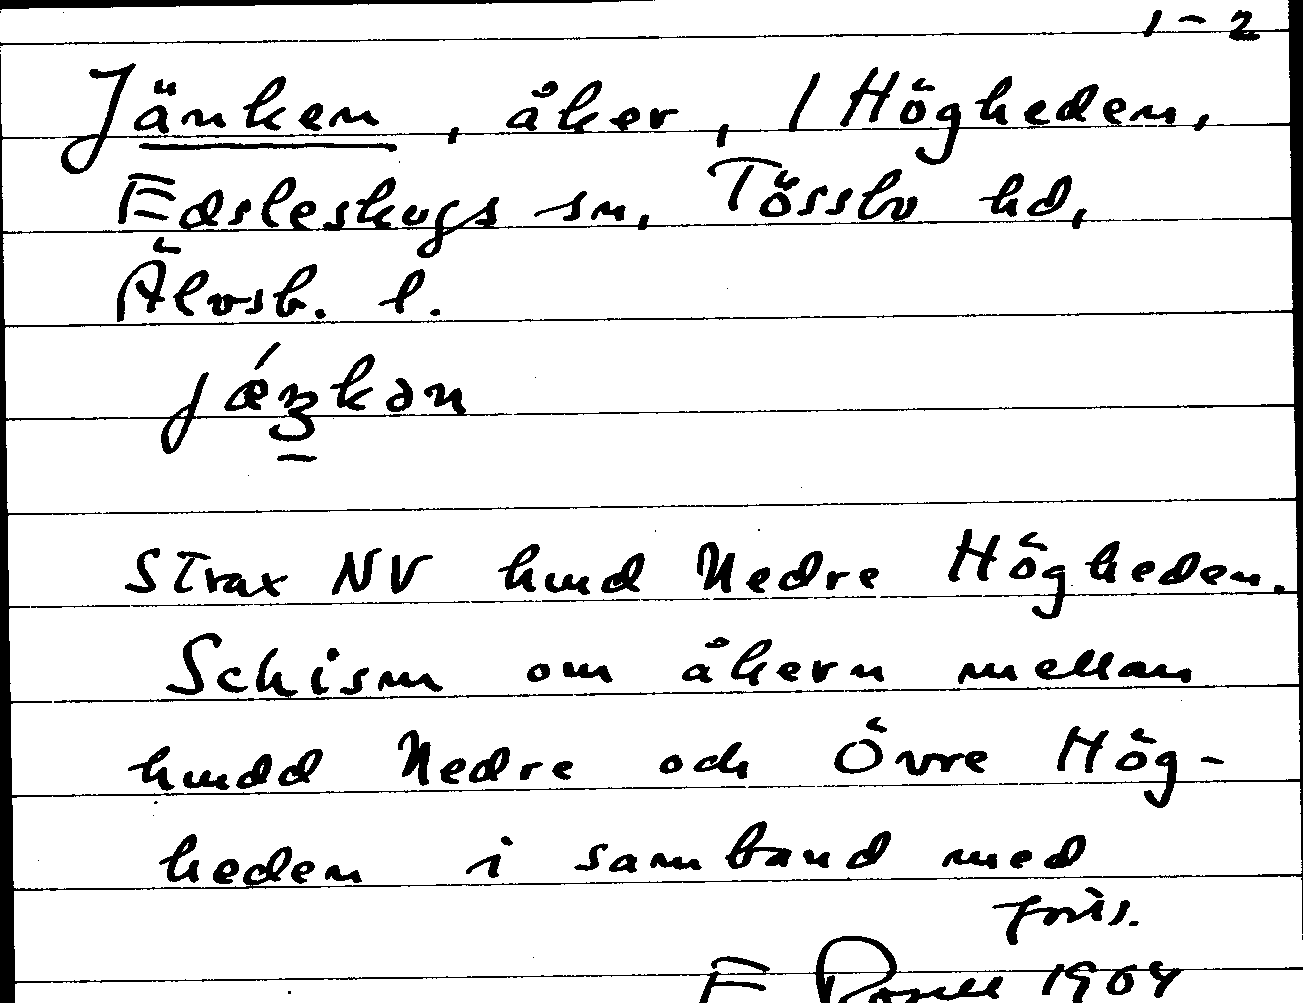 1-2
Jänken, åker, / Högheden,
Edsleskogs sn, Tössbo hd,
Älvsb. l.
Strax NV hmd Nedre Högheden.
Schism om åkern mellan
hmdd Nedre och Övre Hög-
heden i samband med
forts.
E 1964